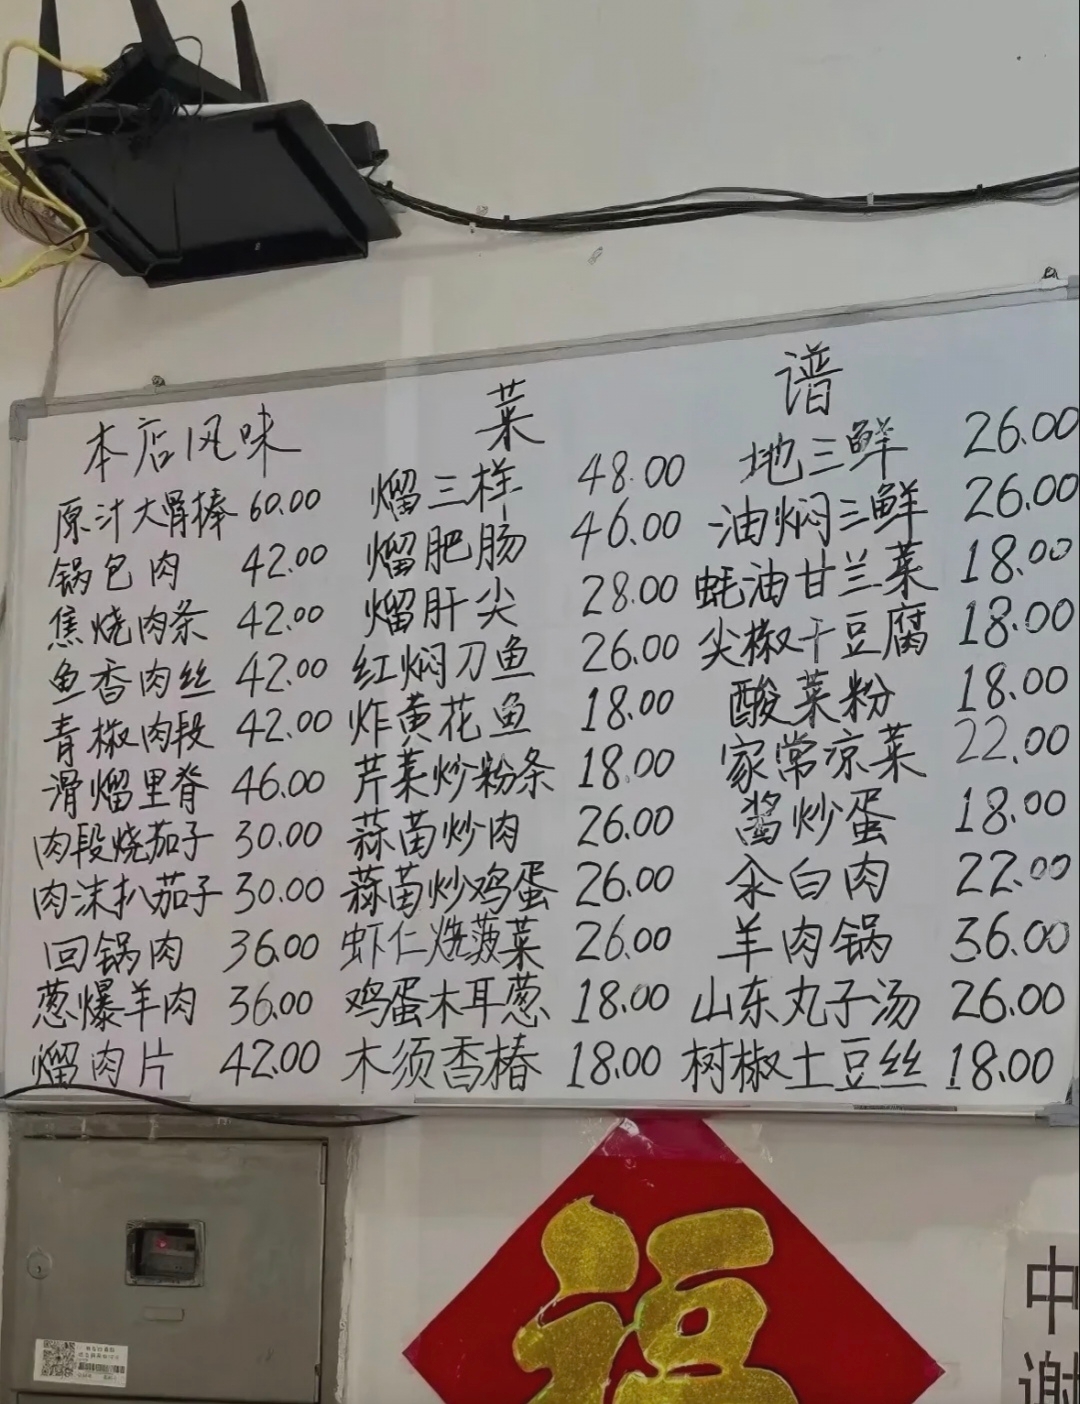 菜 谱
本店风味
原汁大骨棒 60.00
锅包肉 42.00
焦烧肉条 42.00
鱼香肉丝 42.00
青椒肉段 42.00
滑熘里脊 46.00
肉段烧茄子 30.00
肉沫扒茄子 30.00
回锅肉 36.00
葱爆羊肉 36.00
熘肉片 42.00
熘三样 48.00
熘肥肠 46.00
熘肝尖 28.00
红焖刀鱼 26.00
炸黄花鱼 18.00
芹菜炒粉条 18.00
蒜苗炒肉 26.00
蒜苗炒鸡蛋 26.00
虾仁烧菠菜 26.00
鸡蛋木耳葱 18.00
木须香椿 18.00
地三鲜 26.00
油焖三鲜 26.00
蚝油甘兰菜 18.00
尖椒干豆腐 18.00
酸菜粉 18.00
家常凉菜 22.00
酱炒蛋 18.00
汆白肉 22.00
羊肉锅 36.00
山东丸子汤 26.00
树椒土豆丝 18.00
福
中
谢